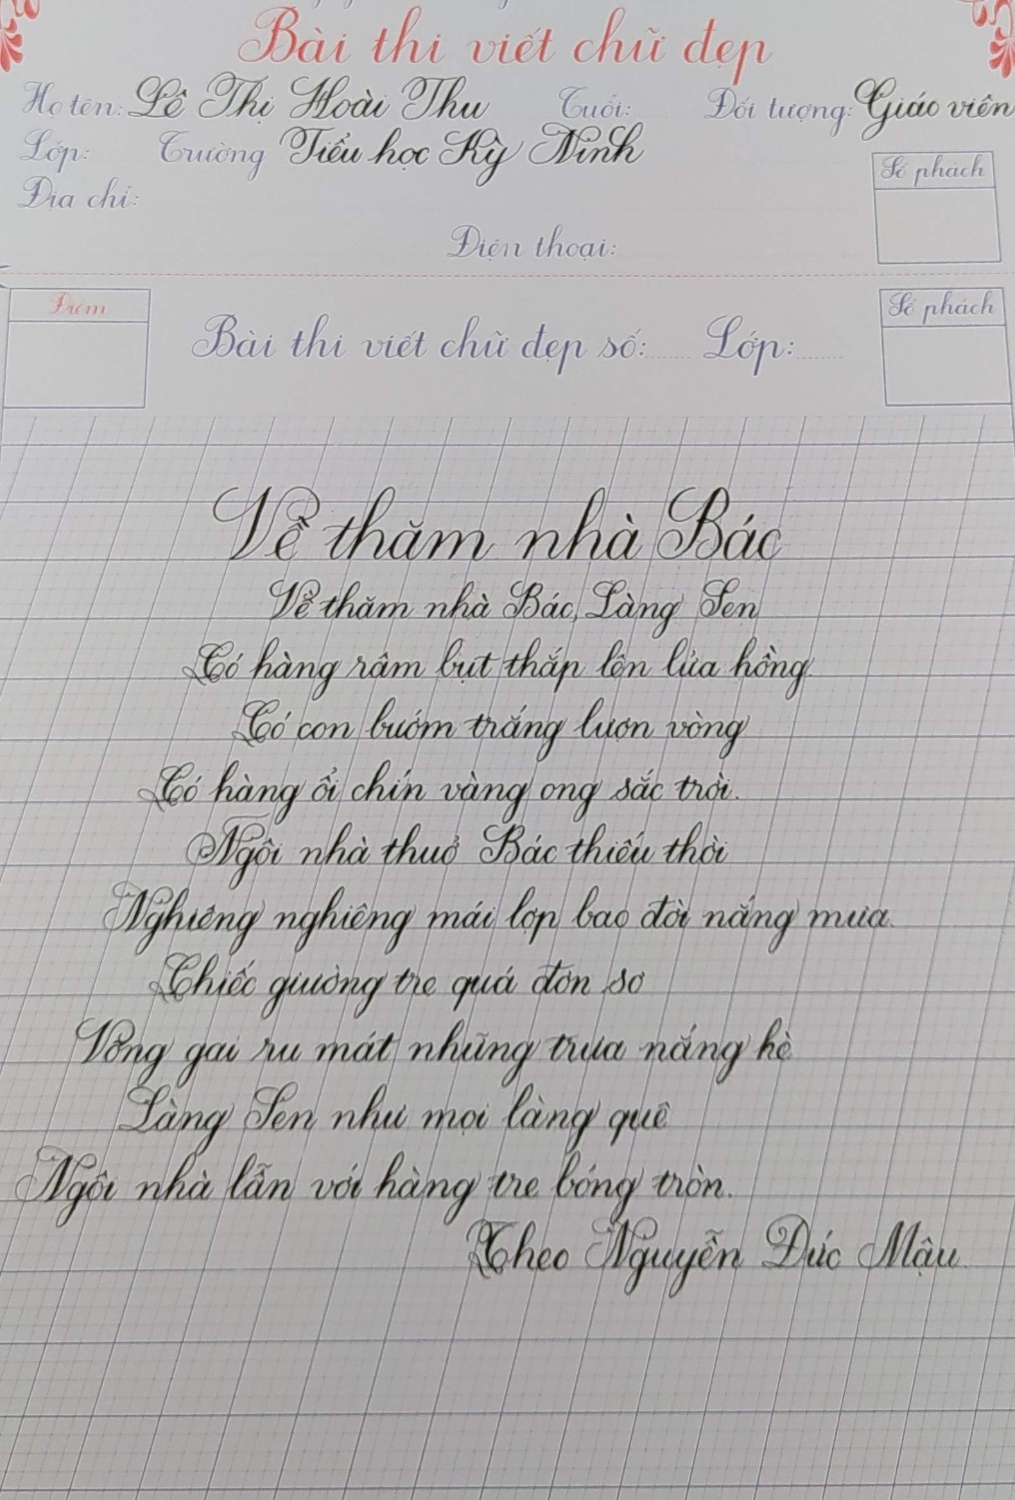 Bài thi viết chữ đẹp
Họ tên: Lê Thị Hoài Thu Tuổi: Đối tượng: Giáo viên
Lớp: Trường Tiểu học Kỳ Ninh
Địa chỉ:
Số phách
Điện thoại:
Điểm
Bài thi viết chữ đẹp số:...... Lớp:......
Số phách
Về thăm nhà Bác
Về thăm nhà Bác, Làng Sen
Có hàng râm bụt thắp lên lửa hồng.
Có con bướm trắng lượn vòng
Có hàng ổi chín vàng ong sắc trời.
Ngôi nhà thuở Bác thiếu thời
Nghiêng nghiêng mái lợp bao đời nắng mưa.
Chiếc giường tre quá đơn sơ
Võng gai ru mát những trưa nắng hè
Làng Sen như mọi làng quê
Ngôi nhà lẫn với hàng tre bóng tròn.
Theo Nguyễn Đức Mậu.